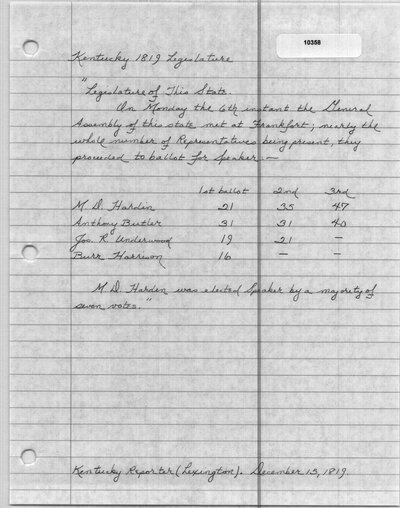 10358
Kentucky 1819 Legislature
"Legislature of This State.
On Monday the 6th instant the General
Assembly of this state met at Frankfort; nearly the
whole number of Representatives being present, they
proceeded to ballot for Speaker:—
1st ballot 2nd 3rd
M. D. Hardin 21 35 47
Anthony Butler 31 31 40
Jos. R. Underwood 19 21 —
Burr Harrison 16 — —
M. D. Harden was elected Speaker by a majority of
seven votes."
Kentucky Reporter (Lexington). December 15, 1819.